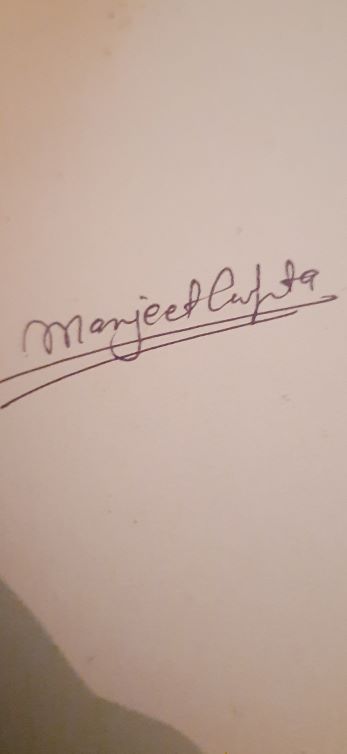 Manjeet Gupta